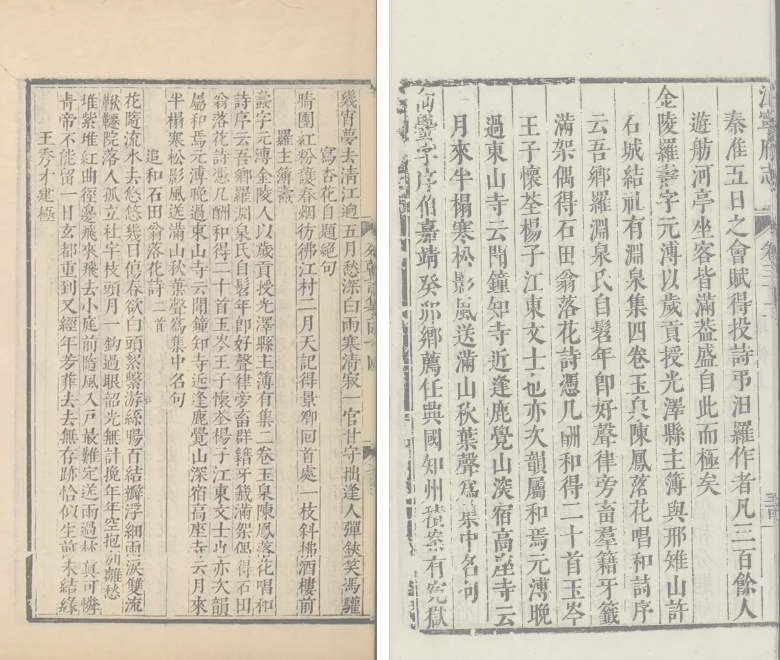 幾宵夢去淸江逈五月愁深白雨寒淸寂一官甘守拙逢人彈鋏笑馮驩
寫杏花自題絕句
晴團紅粉護春烟彷彿江村二月天記得景卿回首處一枝斜拂酒樓前
羅主簿燾
燾字元溥金陵人以歲貢授光澤縣主簿有集二卷玉泉陳鳳落花唱和
詩序云吾鄉羅淵泉氏自髫年卽好聲律旁畜群籍牙籤滿架偶得石田
翁落花詩憑几酬和得二十首玉岑王子懷荃楊子江東文士也亦次韻
屬和焉元溥晚過東山寺云聞鐘知寺近逢鹿覺山深宿高座寺云月來
半榻寒松影風送滿山秋葉聲爲集中名句
追和石田翁落花詩二首
花隨流水去悠悠幾日傷春欲白頭絮繫游絲腸百結瓣浮細雨淚雙流
鞦韆院落人孤立杜宇枝頭月一鉤過眼韶光無計挽年年空抱別離愁
堆紫堆紅曲徑邊飛來飛去小庭前隨風入戸最難定送雨過牀真可憐
青帝不能留一日玄都重到又經年芳菲去去無存跡恰似生前未結緣
王秀才建極
江寧府志
秦淮五日之會賦得投詩弔汨羅作者凡三百餘人
遊舫河亭坐客皆滿葢盛自此而極矣
金陵羅燾字元溥以歲貢授光澤縣主簿與邢雉山許
石城結社有淵泉集四卷玉泉陳鳳落花唱和詩序
云吾鄉羅淵泉氏自髫年卽好聲律旁畜羣籍牙籤
滿架偶得石田翁落花詩憑几酬和得二十首玉岑
王子懷荃楊子江東文士也亦次韻屬和焉元溥晚
過東山寺云聞鐘知寺近逢鹿覺山深宿高座寺云
月來半榻寒松影風送滿山秋葉聲爲集中名句
尙璺字序伯嘉靖癸卯鄉薦任興國知州積案有寃獄